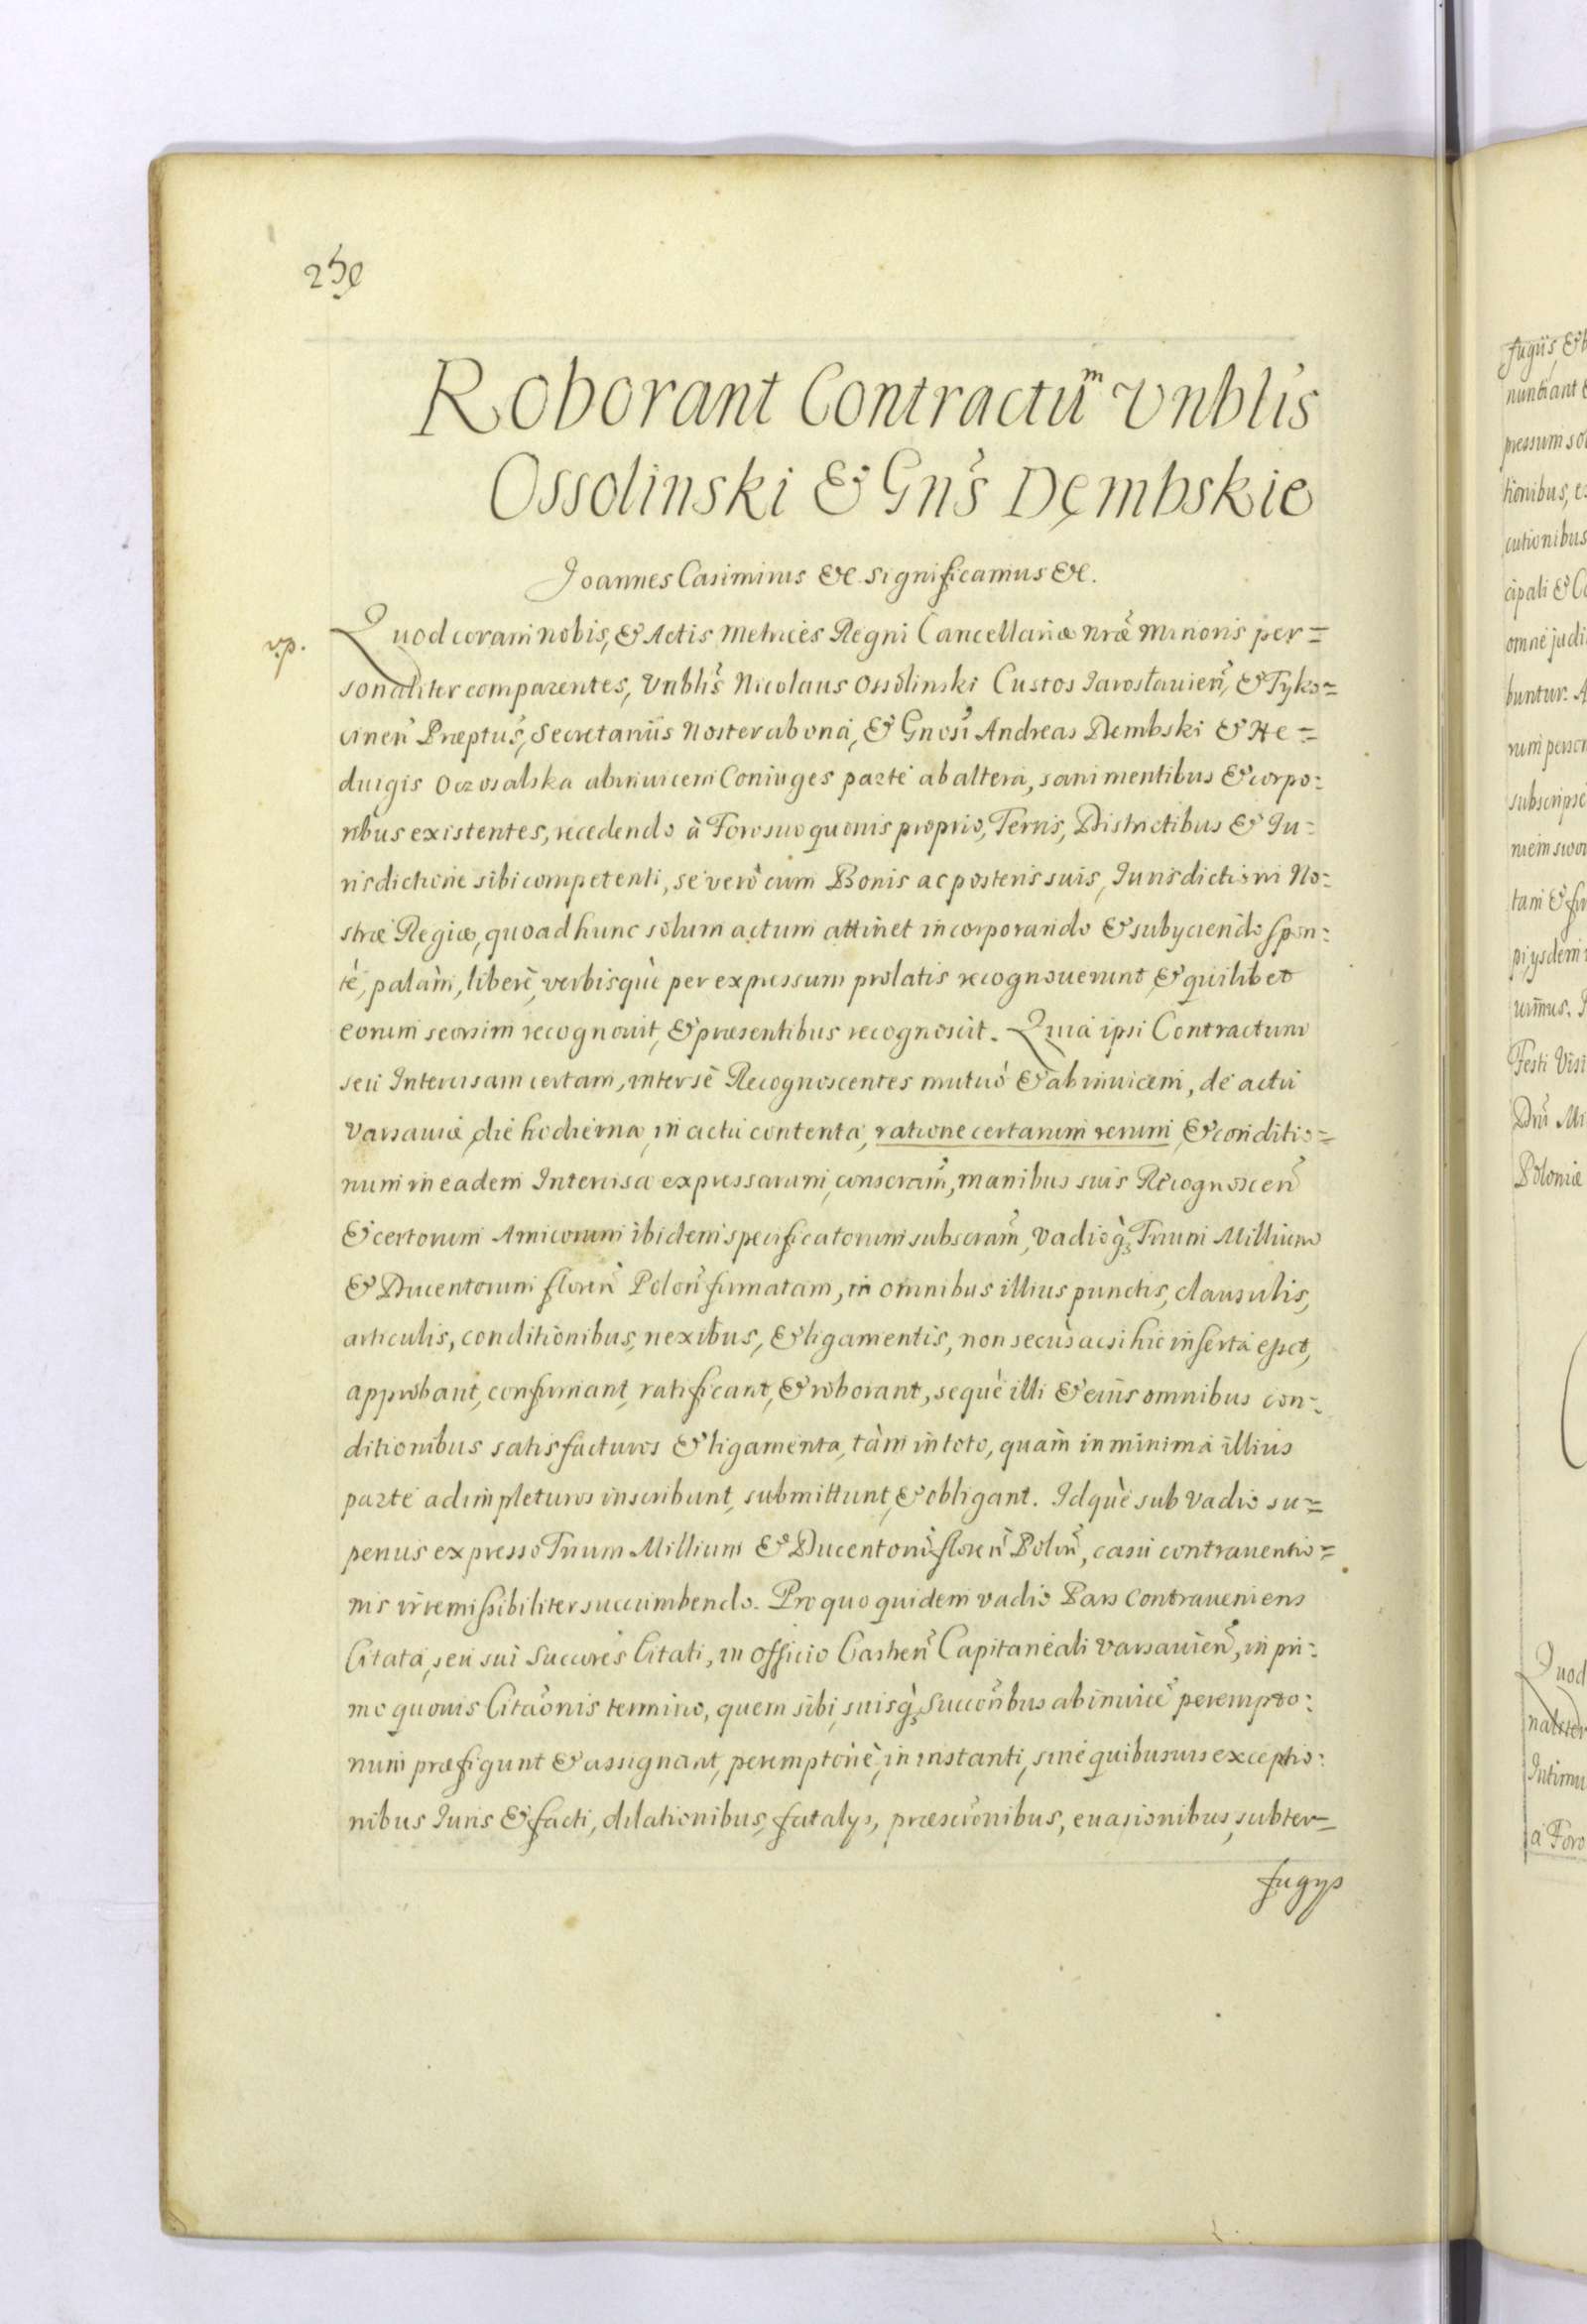 250
Roborant Contractũm Vnblis
Ossolinski & Gn̄s Dęmbskie
Joannes Casimirus &c. significamus &c.
v.p.
Quod coram nobis, & Actis Metrices Regni Cancellariæ nr̃æ Minoris per=
sonaliter comparentes, Vnblis̃ Nicolaus Ossolinski Custos Jarosłauien̄, & Tyko=
cinen̄ Præptus̃, Secretarius Noster ab una, & Gnosi Andreas Dembski & He=
duigis Oczosalska ab inuicem Coniuges parte ab altera, sani mentibus & corpo:
ribus existentes, recedendo à Foro suo quouis proprio, Terris, Districtibus & Iu:
risdictione sibi competenti, se verò cum Bonis ac posteris suis, Iurisdictioni No:
stræ Regiæ, quoad hunc solum actum attinet incorporando & subyciendo spon:
tè, palàm, liberè, verbisquè per expressum prolatis recognouerunt & quilibet
eorum seorsim recognouit, & præsentibus recognoscit. Quia ipsi Contractum
seu Intercisam certam, inter sè Recognoscentes mutuò & ab inuicem, de actu
Varsauiæ die hodierna, in actu contenta, ratione certarum rerum, & conditio=
num in eadem Intercisa expressarum, conscram̃, manibus suis Recognoscen̄
& certorum Amicorum ibidem specificatorum subscram̃, Vadioq̀ȝ Trium Millium
& Ducentorum floren̄ Polon̄ firmatam, in omnibus illius punctis, clausulis,
articulis, conditionibus, nexibus, & ligamentis, non secùs acsi hic inserta esset,
approbant, confirmant, ratificant, & roborant, sequè illi & eius omnibus con:
ditionibus satisfacturos & ligamenta, tàm in toto, quàm in minima illius
parte adimpleturos inscribunt, submittunt, & obligant. Idquè sub Vadio su=
perius expresso Trium Millium & Ducentorũ floren̄ Polon̄, casu contrauentio=
nis irremissibiliter succumbendo. Pro quo quidem vadio Pars Contraueniens
Citata, seu sui Succores̃ Citati, in Officio Castren̄ Capitaneali Varsauien̄, in pri:
mo quouis Citaõnis termino, quem sibi, suisq̀ȝ Succoribus̃ ab inuicẽ perempto:
rium præfigunt & assignant, peremptoriè, in instanti, sine quibusuis exceptio:
nibus Iuris & facti, dilationibus, fatalys, præscronibus̃, euasionibus, subter=
fugys
fugiis, &
pressum
tionibus,
cutionibus
cipali &
buntur.
Poloniæ
Quod
Intimu
à Foro